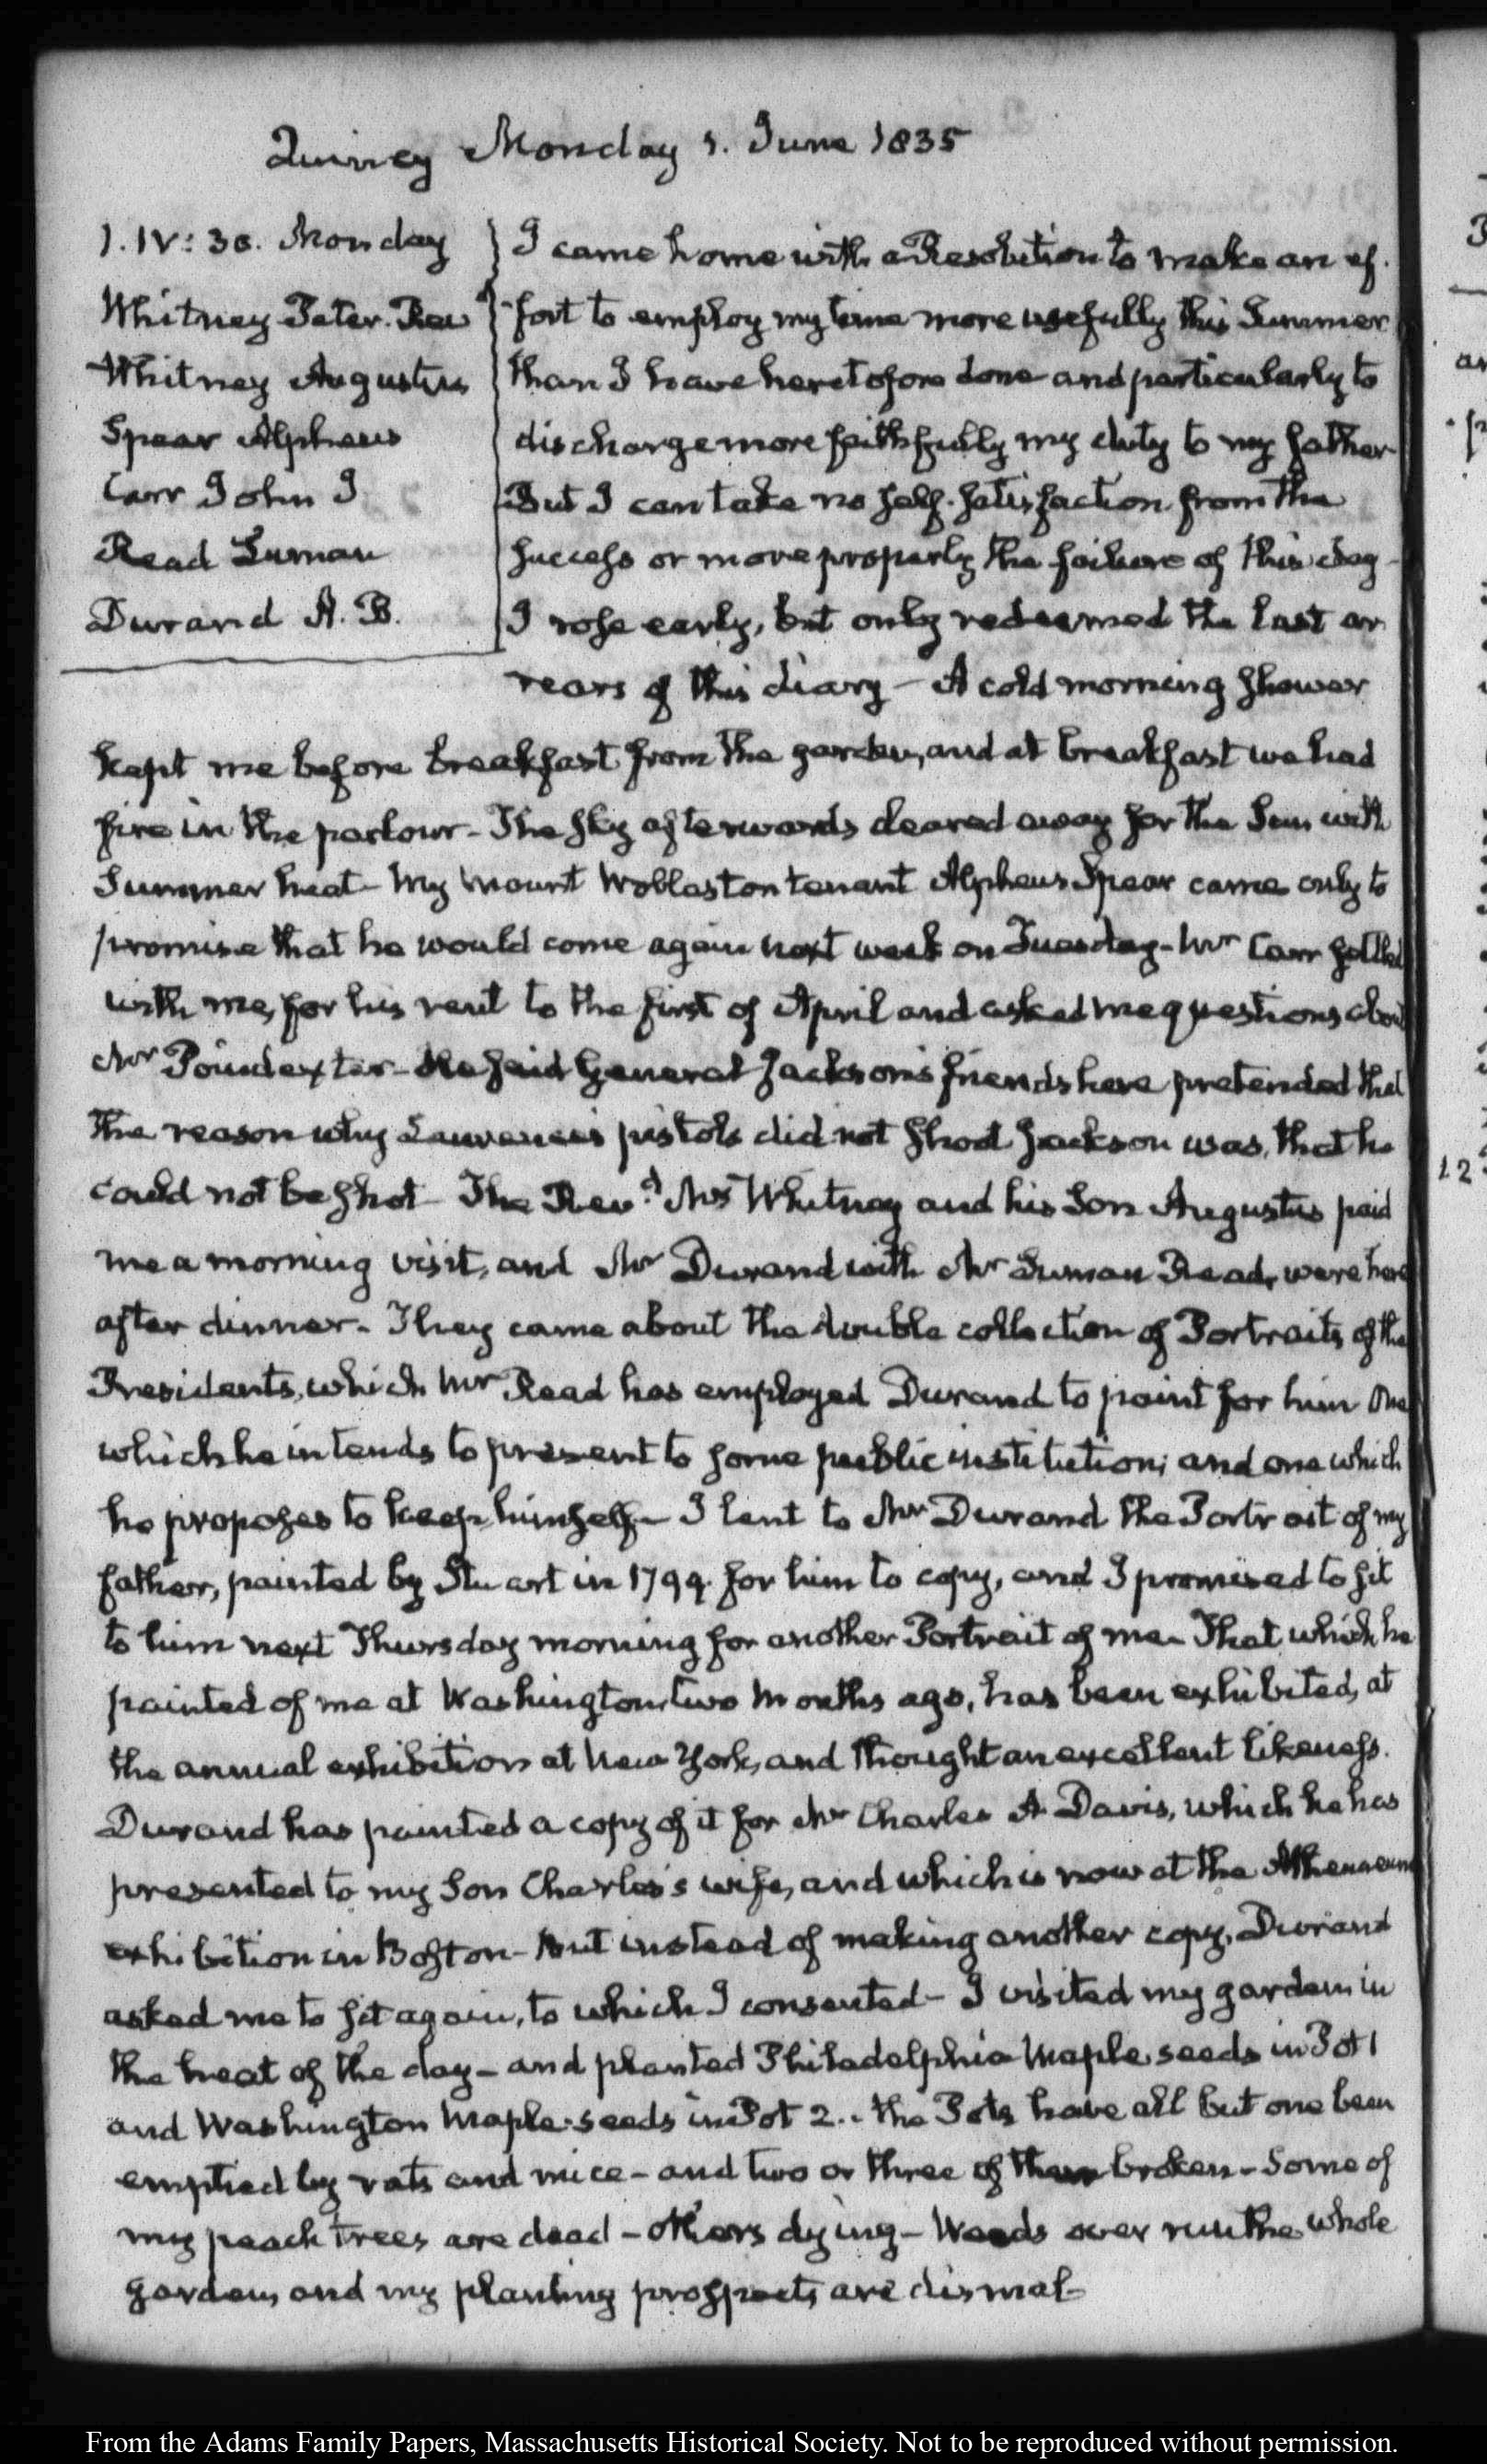 Quincy Monday 1. June 1835
1. IV: 30. Monday
Whitney Peter. Rev.d
Whitney Augustus
Spear Alpheus
Carr John J
Read Luman
Durand A. B.
I came home with a Resolution to make an ef-
fort to employ my time more usefully this Summer
than I have heretofore done and particularly to
discharge more faithfully my duty to my father
But I can take no self-satisfaction from the
success or more properly the failure of this day-
I rose early, but only redeemed the last ar
rears of this diary - A cold morning shower
kept me before breakfast from the garden, and at breakfast we had
fire in the parlour - The sky afterwards cleared away for the Sun with
Summer heat - My Mount Wollaston tenant Alpheus Spear came only to
promise that he would come again next week on Tuesday - Mr Carr settled
with me, for his rent to the first of April and asked me questions about
Mr Poindexter - He said General Jackson's friends here pretended that
the reason why Lawrence's pistols did not shoot Jackson was, that he
could not be shot - The Rev.d Mr Whitney and his Son Augustus paid
me a morning visit, and Mr Durand with Mr Luman Read, were here
after dinner - They came about the double collection of Portraits of the
Presidents, which Mr Read has employed Durand to paint for him One
which he intends to present to some public institution; and one which
he proposes to keep himself - I lent to Mr Durand the Portrait of my
father, painted by Stuart in 1799. for him to copy, and I promised to sit
to him next Thursday morning for another Portrait of me - That which he
painted of me at Washington two Months ago, has been exhibited, at
the annual exhibition at New York, and thought an excellent likeness.
Durand has painted a copy of it for Mr Charles A. Davis, which he has
presented to my Son Charles's wife, and which is now at the Athenaeum
exhibition in Boston - But instead of making another copy, Durand
asked me to sit again, to which I consented - I visited my garden in
the heat of the day - and planted Philadelphia Maple seeds in Pot 1
and Washington Maple-seeds in Pot 2.. the Pots have all but one been
emptied by rats and mice - and two or three of them broken - Some of
my peach trees are dead - others dying - Weeds over run the whole
garden, and my planting prospects are dismal -
12
From the Adams Family Papers, Massachusetts Historical Society. Not to be reproduced without permission.